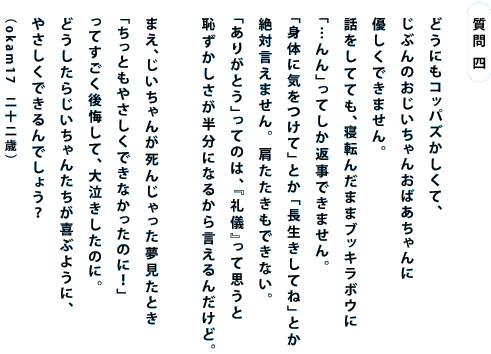 質問 四
どうにもコッパズかしくて、
じぶんのおじいちゃんおばあちゃんに
優しくできません。
話をしてても、寝転んだままブッキラボウに
「…んん」ってしか返事できません。
「身体に気をつけて」とか「長生きしてね」とか
絶対言えません。肩たたきもできない。
「ありがとう」ってのは、『礼儀』って思うと
恥ずかしさが半分になるから言えるんだけど。
まえ、じいちゃんが死んじゃった夢見たとき
「ちっともやさしくできなかったのに！」
ってすごく後悔して、大泣きしたのに。
どうしたらじいちゃんたちが喜ぶように、
やさしくできるんでしょう？
（okam17 二十二歳）